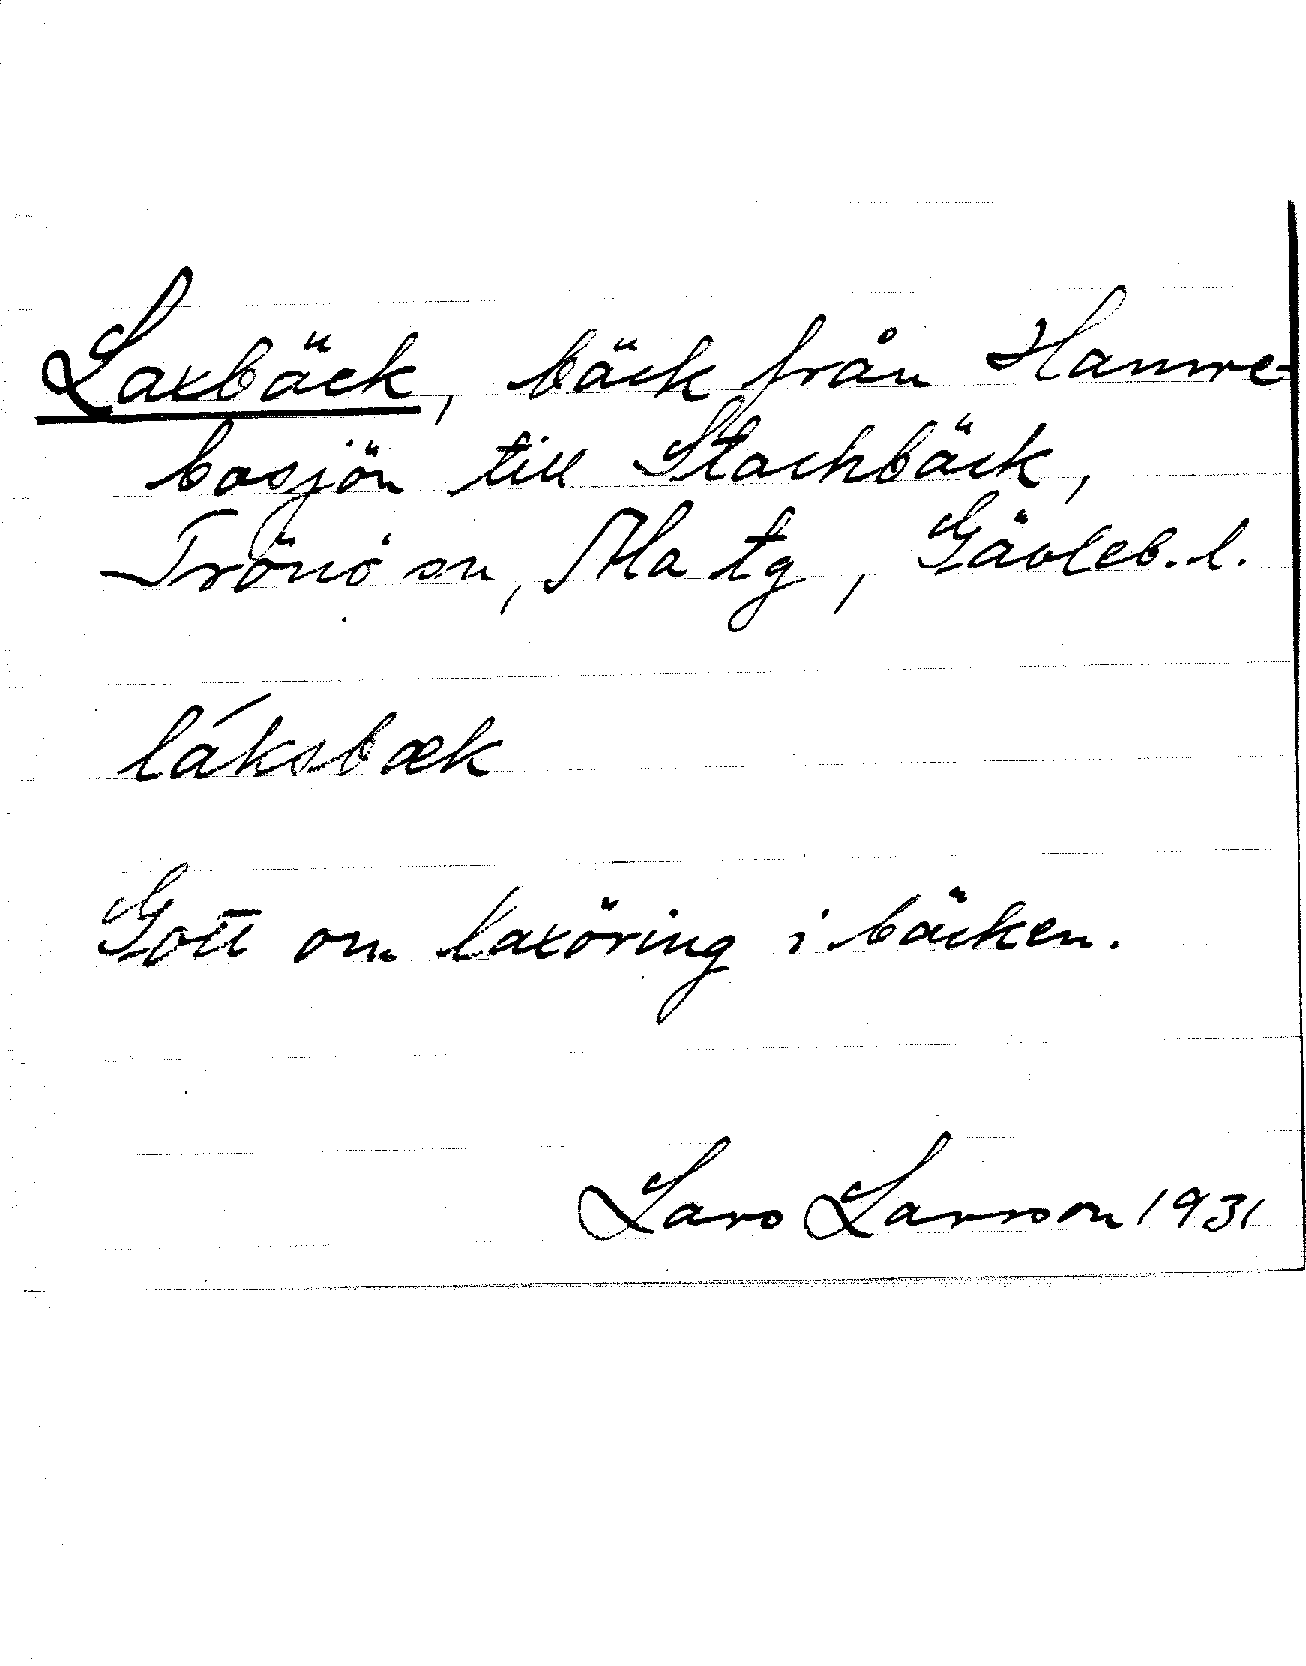 Laxbäck, bäck från Hamre-
bosjön till Stackbäck,
Trönö sn, Ala tg, Gävleb. l.
láksbæk
Gott om laxöring i bäcken.
Lars Larsson 1931